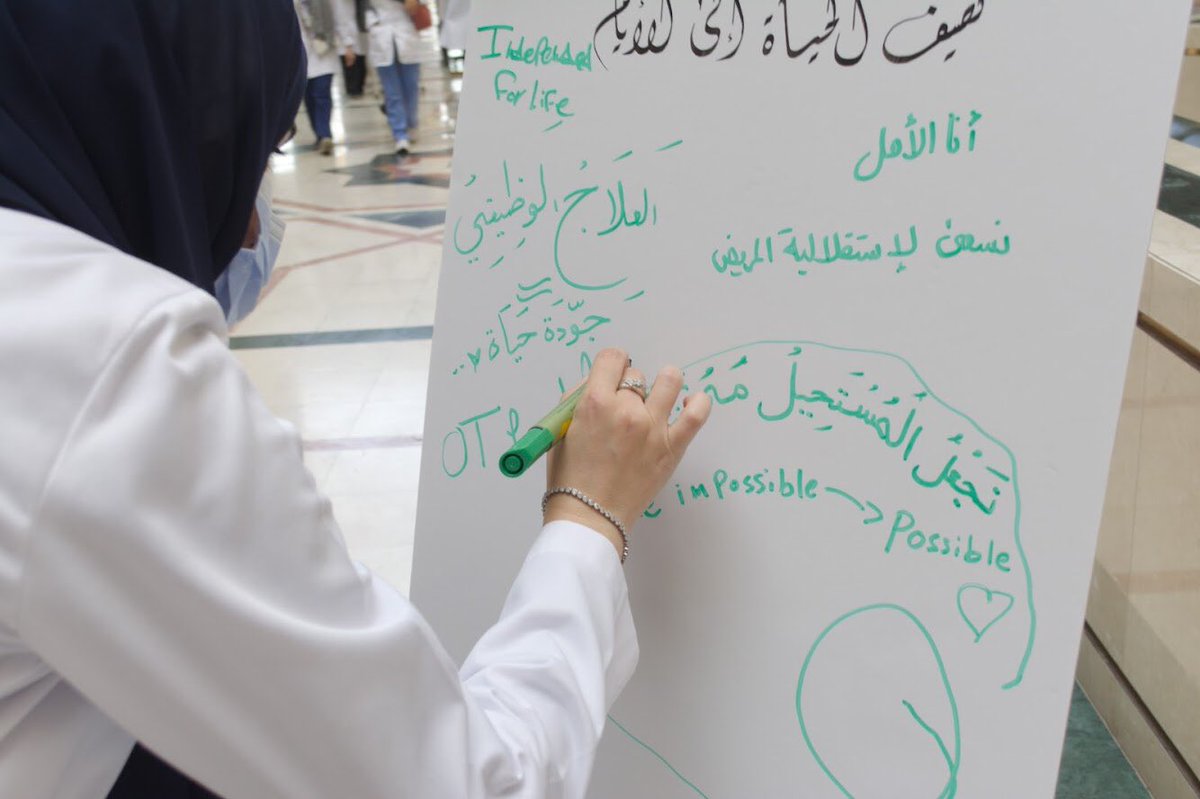 نضيف الحياة إلى الأيام
Independed
for life
أنا الأمل
العِلَاجُ الوَظِيفِيُ
نسعى لإستقلالية المريض
جَوّدَة حَيَاة
نَجْعَلُ المُسْتَحِيلُ
OT
impossible → Possible